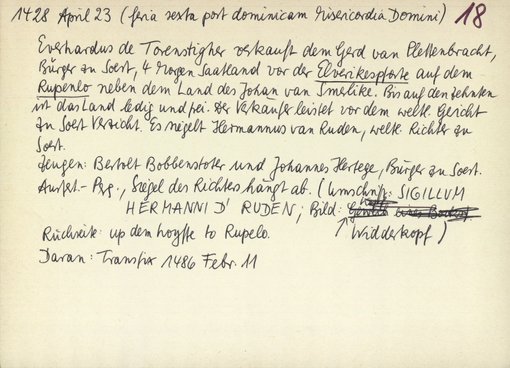 1428 April 23 (feria sexta post dominicam Misericordia Domini) 18
Everhardus de Torenstigher verkauft dem Gerd van Plettenbracht,
Bürger zu Soest, 4 Morgen Saatland vor der Elverikespforte auf dem
Rupenlo neben dem Land des Johan van Smerlike. Bis auf den Zehnten
ist das Land ledig und frei. Der Verkäufer leistet vor dem weltl. Gericht
zu Soest Verzicht. Es siegelt Hermannus van Ruden, weltl. Richter zu
Soest.
Zeugen: Bertolt Bobbenstoter und Johannes Hertege, Bürger zu Soest.
Ausfert.- Prg., Siegel des Richters hängt ab. (Umschrift: SIGILLUM
HERMANNI D' RUDEN; Bild:
Widderkopf)
Rückseite: up dem hoyffe to Rupelo.
Daran: Transfix 1486 Febr. 11